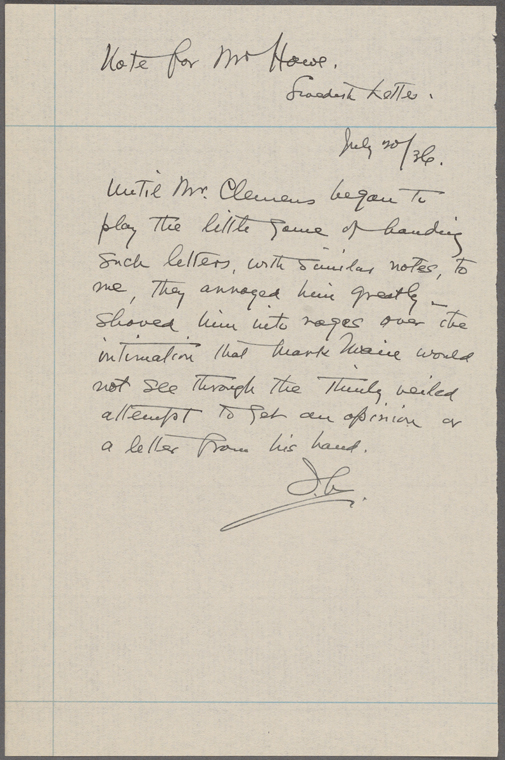 Note for Mr Howe.
Swedish Letter.
July 20/36.
Until Mr. Clemens began to
play the little game of handing
such letters, with similar notes, to
me, they annoyed him greatly –
shoved him into rages over the
intimation that Mark Twain would
not see through the thinly veiled
attempt to get an opinion or
a letter from his hand.